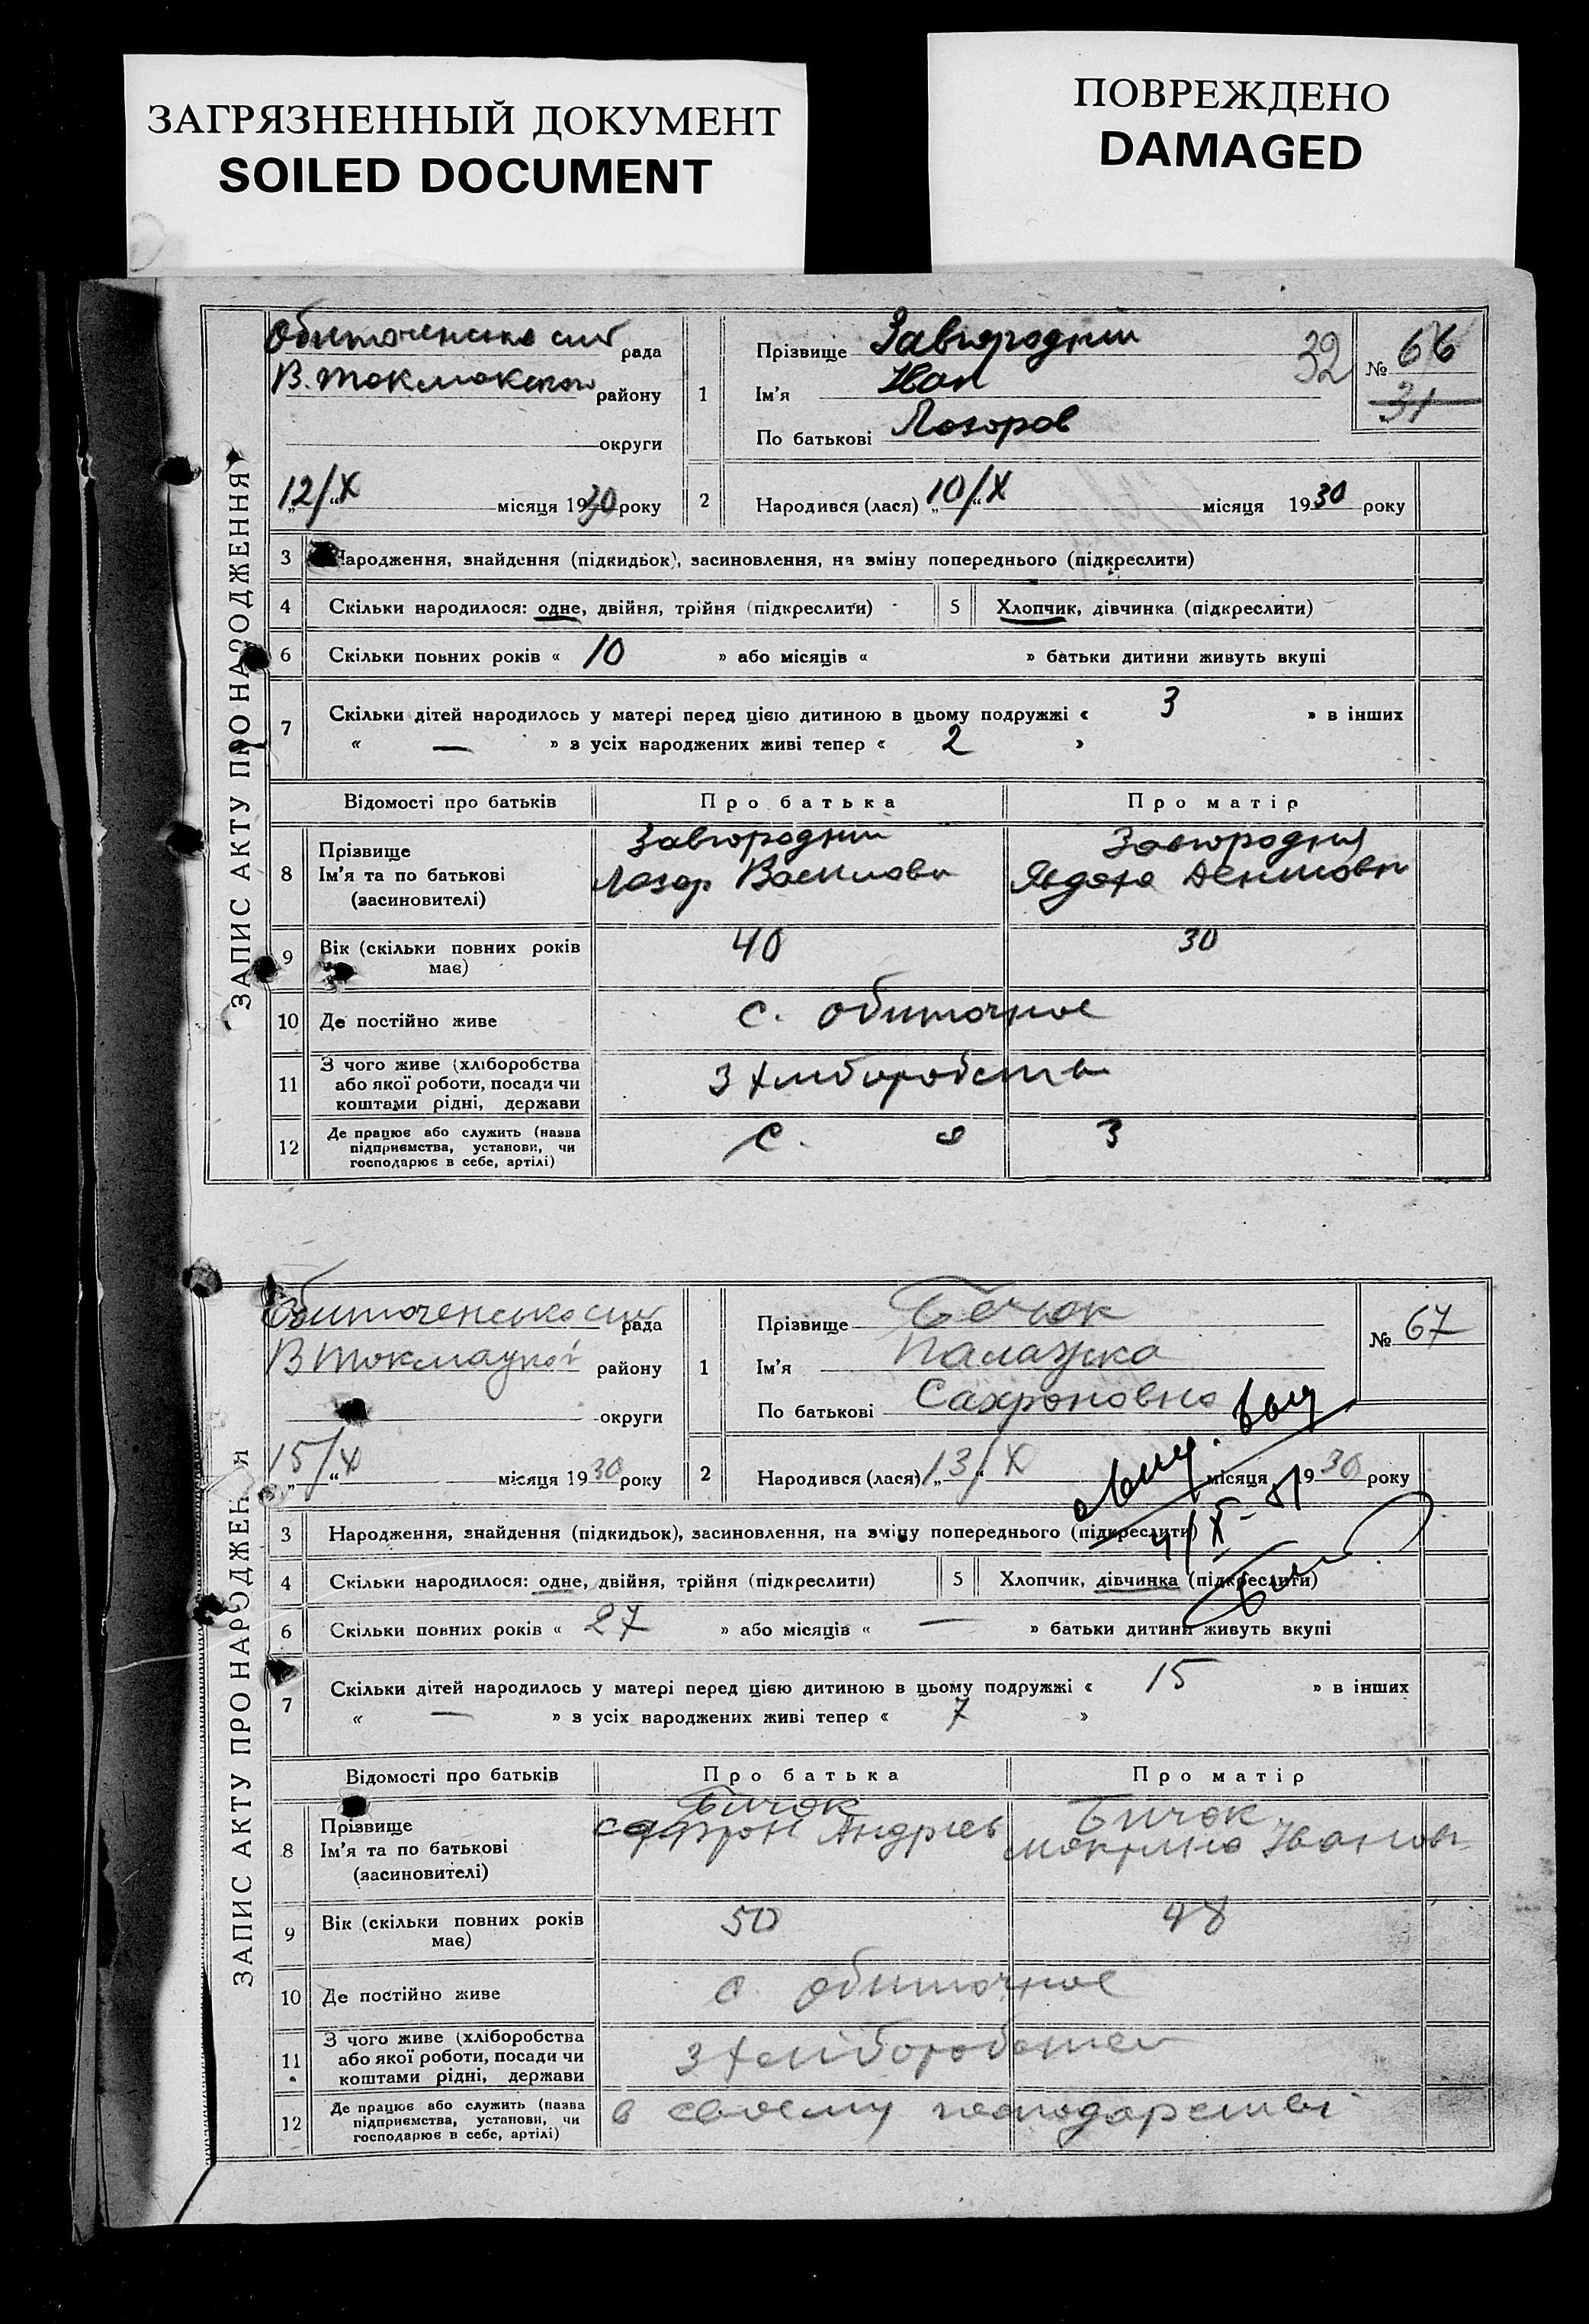 ЗАГРЯЗНЕННЫЙ ДОКУМЕНТ
SOILED DOCUMENT
ПОВРЕЖДЕНО
DAMAGED
ЗАПИС АКТУ ПРО НАРОДЖЕННЯ
Обиточенська сил рада
В. Токмакского району
округи
12/X місяця 1930 року
1 Прізвище Завгородний
Ім'я Иван
По батькові Лазоров
32
№ 66
31
2 Народився (лася) „10/X“ місяця 1930 року
3 Народження, знайдення (підкидьок), засиновлення, на зміну попереднього (підкреслити)
4 Скільки народилося: одне, двійня, трійня (підкреслити) 5 Хлопчик, дівчинка (підкреслити)
6 Скільки повних років « 10 » або місяців « » батьки дитини живуть вкупі
7 Скільки дітей народилось у матері перед цією дитиною в цьому подружжі « 3 » в інших
« — » з усіх народжених живі тепер « 2 »
Відомості про батьків Про батька Про матір
8 Прізвище Ім'я та по батькові (засиновителі)
Завгородний
Лазар Васильови
Завгородня
Явдоха Денисовн
9 Вік (скільки повних років має) 40 30
10 Де постійно живе с. Обиточное
11 З чого живе (хліборобства або якої роботи, посади чи коштами рідні, держави З хліборобства
12 Де працює або служить (назва підприємства, установи, чи господарює в себе, артілі) С. О З
ЗАПИС АКТУ ПРО НАРОДЖЕН я
Обиточенська сил рада
В Токмацкої району
округи
„15/X“ місяця 1930 року
1 Прізвище Бечок
Ім'я Палажка
По батькові Сахроновна
№ 67
2 Народився (лася) „13/X“ місяця 1930 року
3 Народження, знайдення (підкидьок), засиновлення, на зміну попереднього (підкреслити)
4 Скільки народилося: одне, двійня, трійня (підкреслити) 5 Хлопчик, дівчинка (підкреслити)
6 Скільки повних років « 27 » або місяців « — » батьки дитини живуть вкупі
7 Скільки дітей народилось у матері перед цією дитиною в цьому подружжі « 15 » в інших
« — » з усіх народжених живі тепер « 7 »
Відомості про батьків Про батька Про матір
8 Прізвище Ім'я та по батькові (засиновителі)
Бичок
Андріев
Бичок
Мокрина Іванов
9 Вік (скільки повних років має) 50 48
10 Де постійно живе с. Обиточное
11 З чого живе (хліборобства або якої роботи, посади чи коштами рідні, держави З хліборобства
12 Де працює або служить (назва підприємства, установи, чи господарює в себе, артілі) в своему господарстві